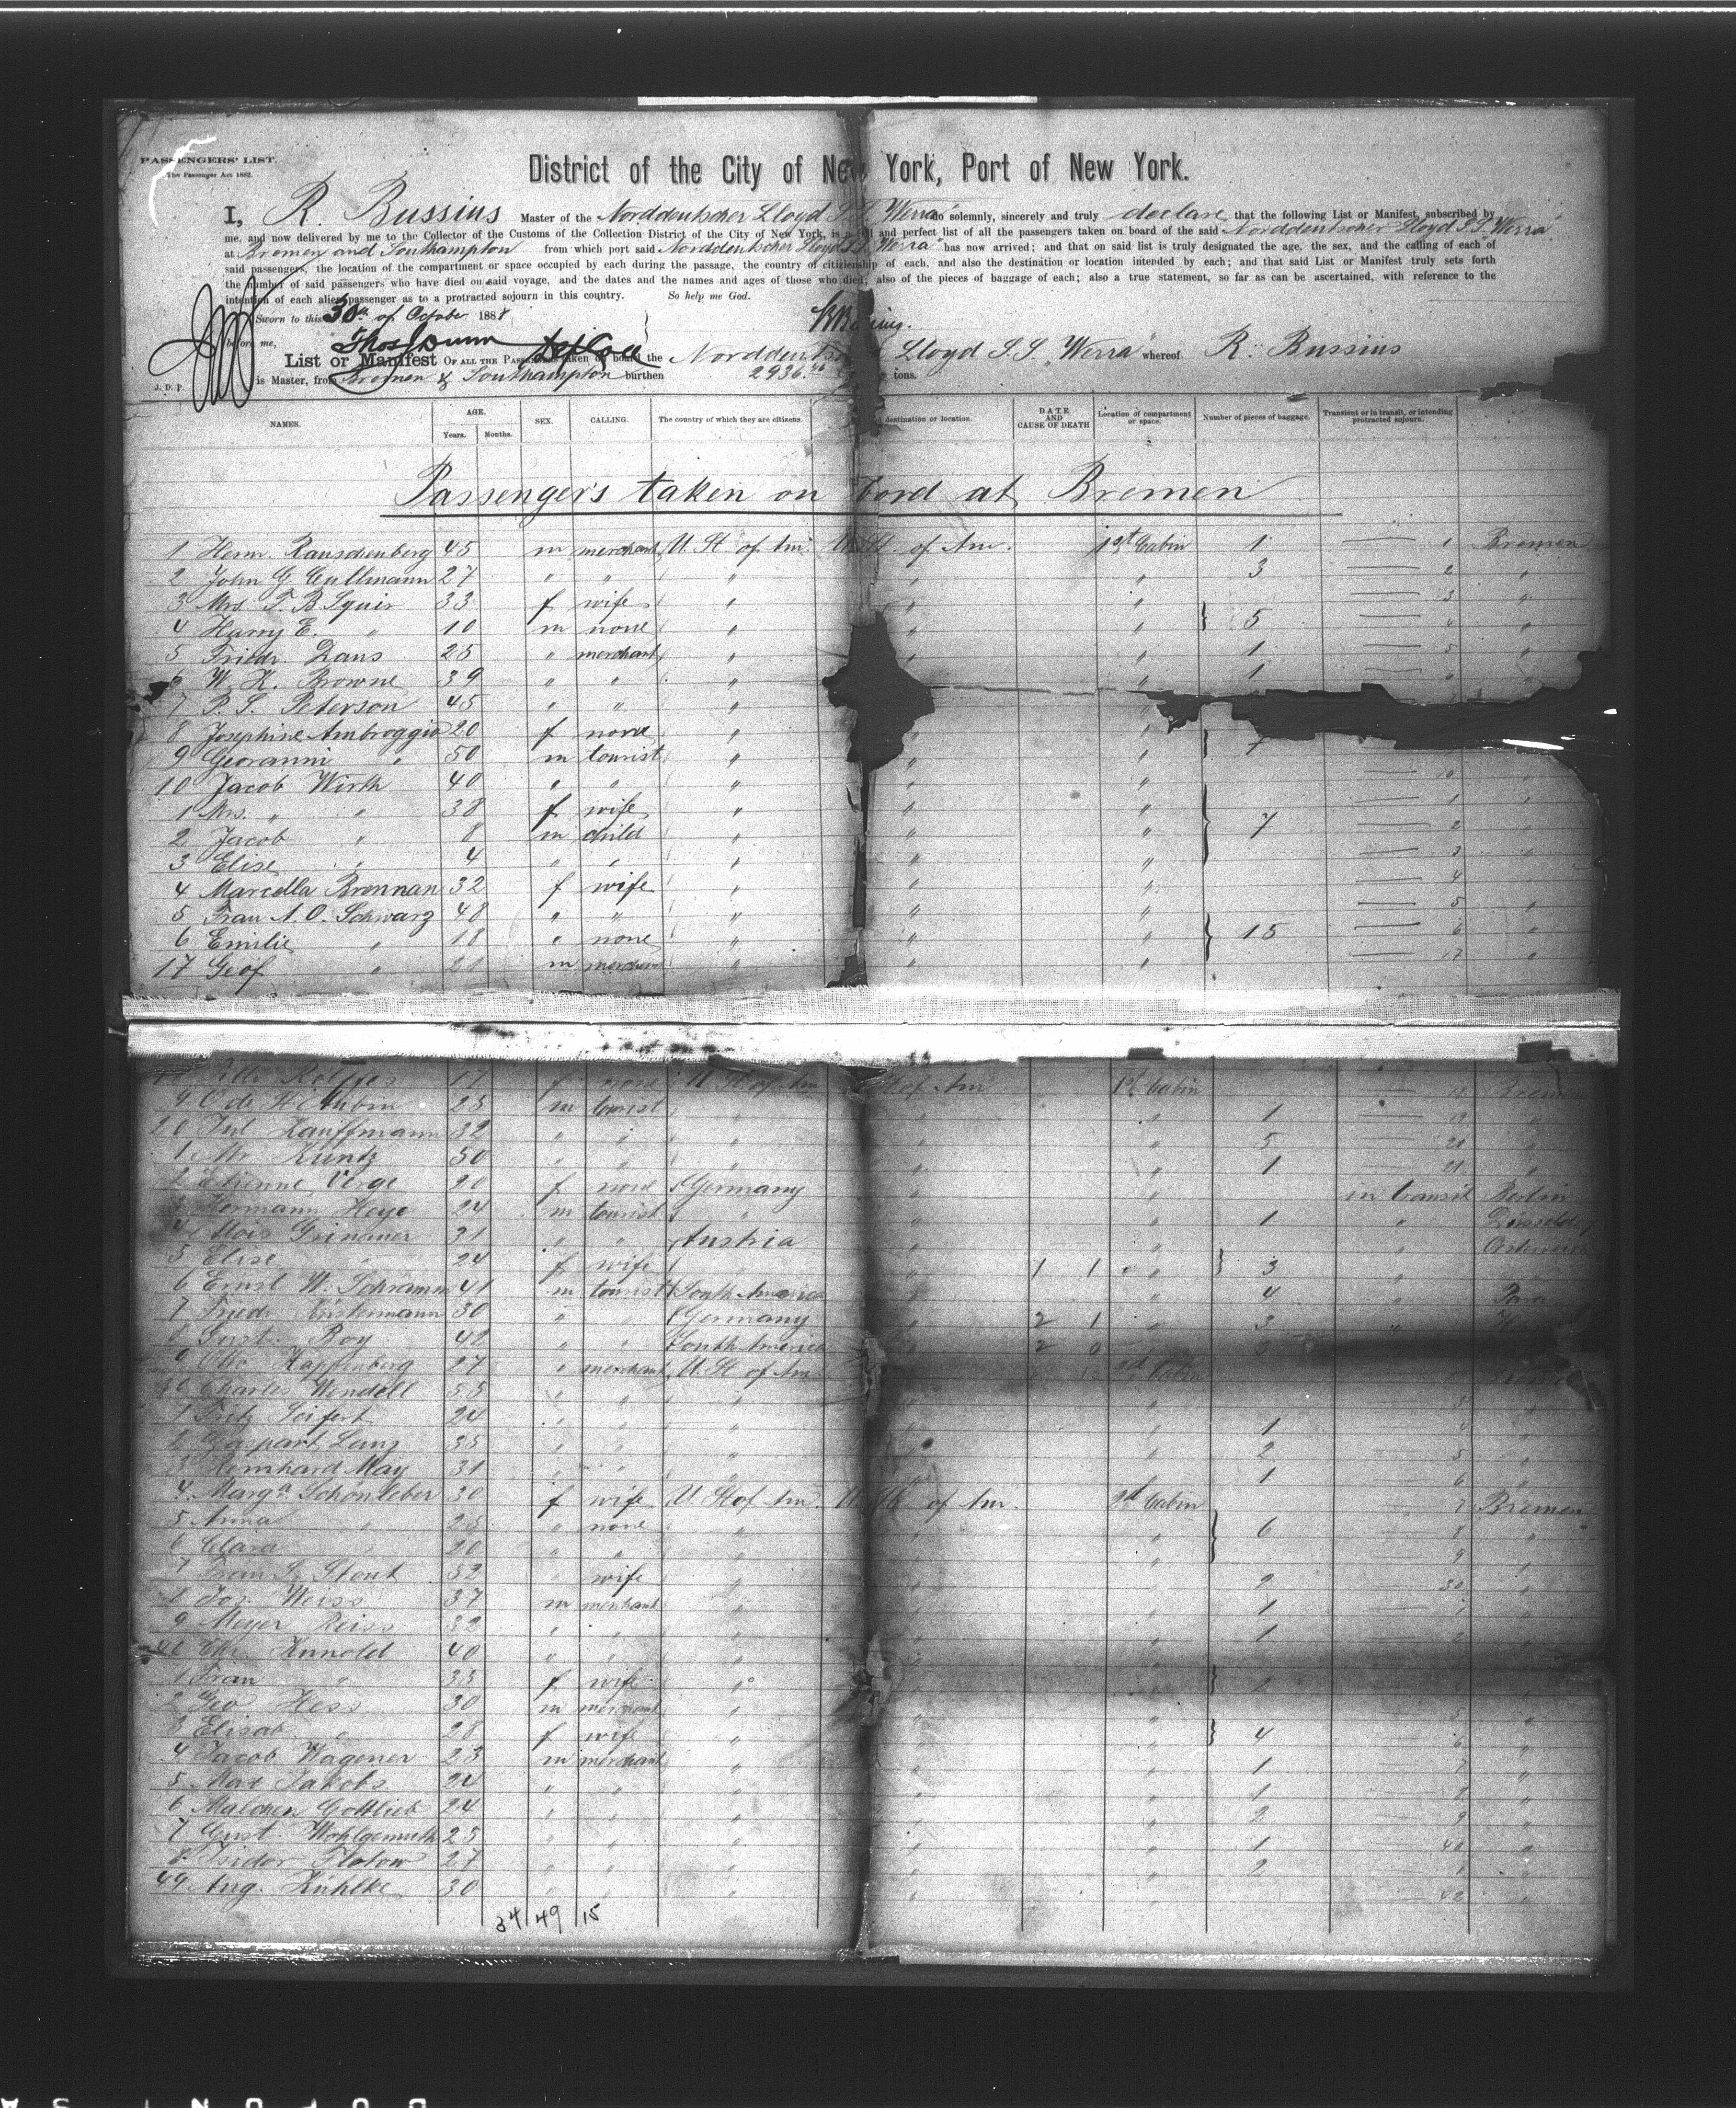 PASSENGERS' LIST.
The Passenger Act 1882.
District of the City of New York, Port of New York.
I, R. Bussius Master of the Norddeutscher Lloyd S.S. Werra do solemnly, sincerely and truly declare that the following List or Manifest, subscribed by
me, and now delivered by me to the Collector of the Customs of the Collection District of the City of New York, is a full and perfect list of all the passengers taken on board of the said Norddeutscher Lloyd S.S. Werra
at Bremen and Southampton from which port said Norddeutscher Lloyd S.S. "Werra" has now arrived; and that on said list is truly designated the age, the sex, and the calling of each of
said passengers, the location of the compartment or space occupied by each during the passage, the country of citizenship of each, and also the destination or location intended by each; and that said List or Manifest truly sets forth
the number of said passengers who have died on said voyage, and the dates and the names and ages of those who died; also of the pieces of baggage of each; also a true statement, so far as can be ascertained, with reference to the
intention of each alien passenger as to a protracted sojourn in this country. So help me God.
Sworn to this 30th of October 1888
before me,
List or Manifest OF ALL THE PASSENGERS taken on board the Norddeutscher Lloyd S.S. "Werra" whereof R. Bussius
J. D. P. is Master, from Bremen & Southampton burthen 2936 tons.
NAMES. AGE. Years. Months. SEX. CALLING. The country of which they are citizens. destination or location. DATE AND CAUSE OF DEATH Location of compartment or space. Number of pieces of baggage. Transient or in transit, or intending protracted sojourn.
Passengers taken on bord at Bremen
1 Herm. Rauschenberg 45 m merchant U. St of Am. U. St. of Am. 1st Cabin 1 — 1 Bremen
2 John G. Cullmann 27 " " " " " 3 — 2 "
3 Mrs. T. B. Squir 33 f wife " " " — 3 "
4 Harry E. " 10 m none " " " 5 — 4 "
5 Friedr. Dans 25 " merchant " " " 1 — 5 "
6 W. H. Browne 39 " " " " 1
7 P. S. Peterson 45 " " " "
8 Josephine Ambroggio 20 f none " " "
9 Geovanni " 50 m tourist " " " 7
10 Jacob Wirth 40 " " " " " — 10 "
1 Mrs. " " 38 f wife " " " — 1 "
2 Jacob " 8 m child " " " 7 — 2 "
3 Elise " 4 " " " " " — 3 "
4 Marcella Brennan 32 f wife " " " — 4 "
5 Frau A. O. Schwarz 48 " " " " " — 5 "
6 Emilie " 18 " none " " " 15 — 6 "
17 Geof " 21 m merchant " " " 17 "
17 f none U St of Am St of Am 1st Cabin Bremen
9 28 m tourist " " " 1 — 19 "
20 Jul Kauffmann 32 " " " " " 5 — 20 "
1 Mr. Kuntz 50 " " " " " 1 — 21 "
2 Etienne Verge 20 f none Germany " " in transit Berlin
3 Hermann Heye 24 m tourist " " " 1 "
4 Alois Grinauer 31 " " Austria " " "
5 Elise " 24 f wife " " 1 1 " 3 "
6 Ernst W. Schramm 41 m tourist South America " " 4 " Para
7 Friedr. 30 " " Germany " 2 1 " 3 "
8 Gust. Roy 42 " " South America " 2 0 "
9 Otto 27 " merchant U. St of Am " 2d Cabin
30 Charles Wendell 55 " " " " "
1 Fritz Seifert 24 " " " " " 1 4 "
2 Gaspart Lenz 35 " " " " " 2 5 "
3 Reinhard May 31 " " " " 1 6 "
4 Marga. Schönleber 30 f wife U. St of Am. U. St. of Am. 2d Cabin 7 Bremen
5 Anna " 23 " none " " " 6 8 "
6 Clara " 20 " " " " " 9 "
7 Frau S. Stout 52 " wife " " 2 30 "
8 Jos. Weiss 37 m merchant " " " 1 1 "
9 Meyer Reiss 32 " " " " " 1 2 "
40 Chr. Arnold 40 " " " " "
1 Frau " 35 f wife " "
2 Geo Hess 30 m merchant " " " 5 "
3 Elisab " 28 f wife " " " 4 6 "
4 Jacob Wagener 23 m merchant " " " 1 7 "
5 Max Jakobs 24 " " " " " 1 8 "
6 Malchen Gottlieb 24 " " " " " 2 9 "
7 Gust. Wohlgemuth 25 " " " " " 1 40 "
8 Isidor Flatow 27 " " " " " 2 1 "
49 Aug. Kühlke 30 " " " " " 42 "
34 49 15